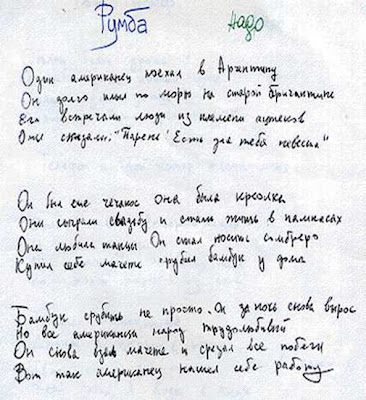 Румба
надо
Один американец поехал в Аргентину
Он долго плыл по морю на старой бригантине
Его встречали люди из племени ацтеков
Они сказали: "Парень! Есть для тебя невеста"
Он был еще чечако она была креолка
Они сыграли свадьбу и стали жить в пампасах
Она любила танцы Он стал носить сомбреро
Купил себе мачете срубил бамбук у дома
Бамбук срубить не просто. Он за ночь снова вырос
Но все американцы народ трудолюбивый
Он снова взял мачете и срезал все побеги
Вот так американец нашел себе работу